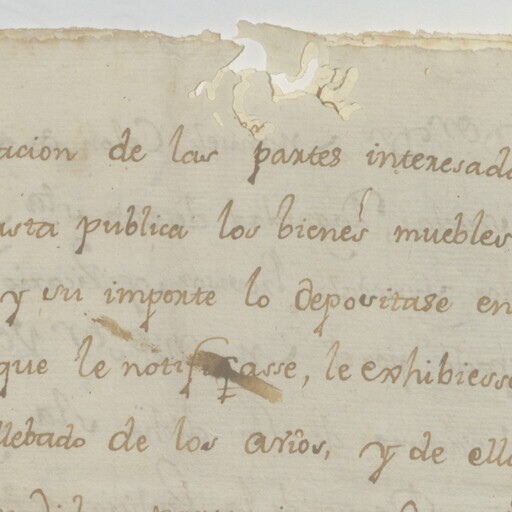 acion de las partes interesad
asta publica los bienes muebles
y su importe lo depositase en
que le notificasse, le exhibiess
llebado de los
y de ell